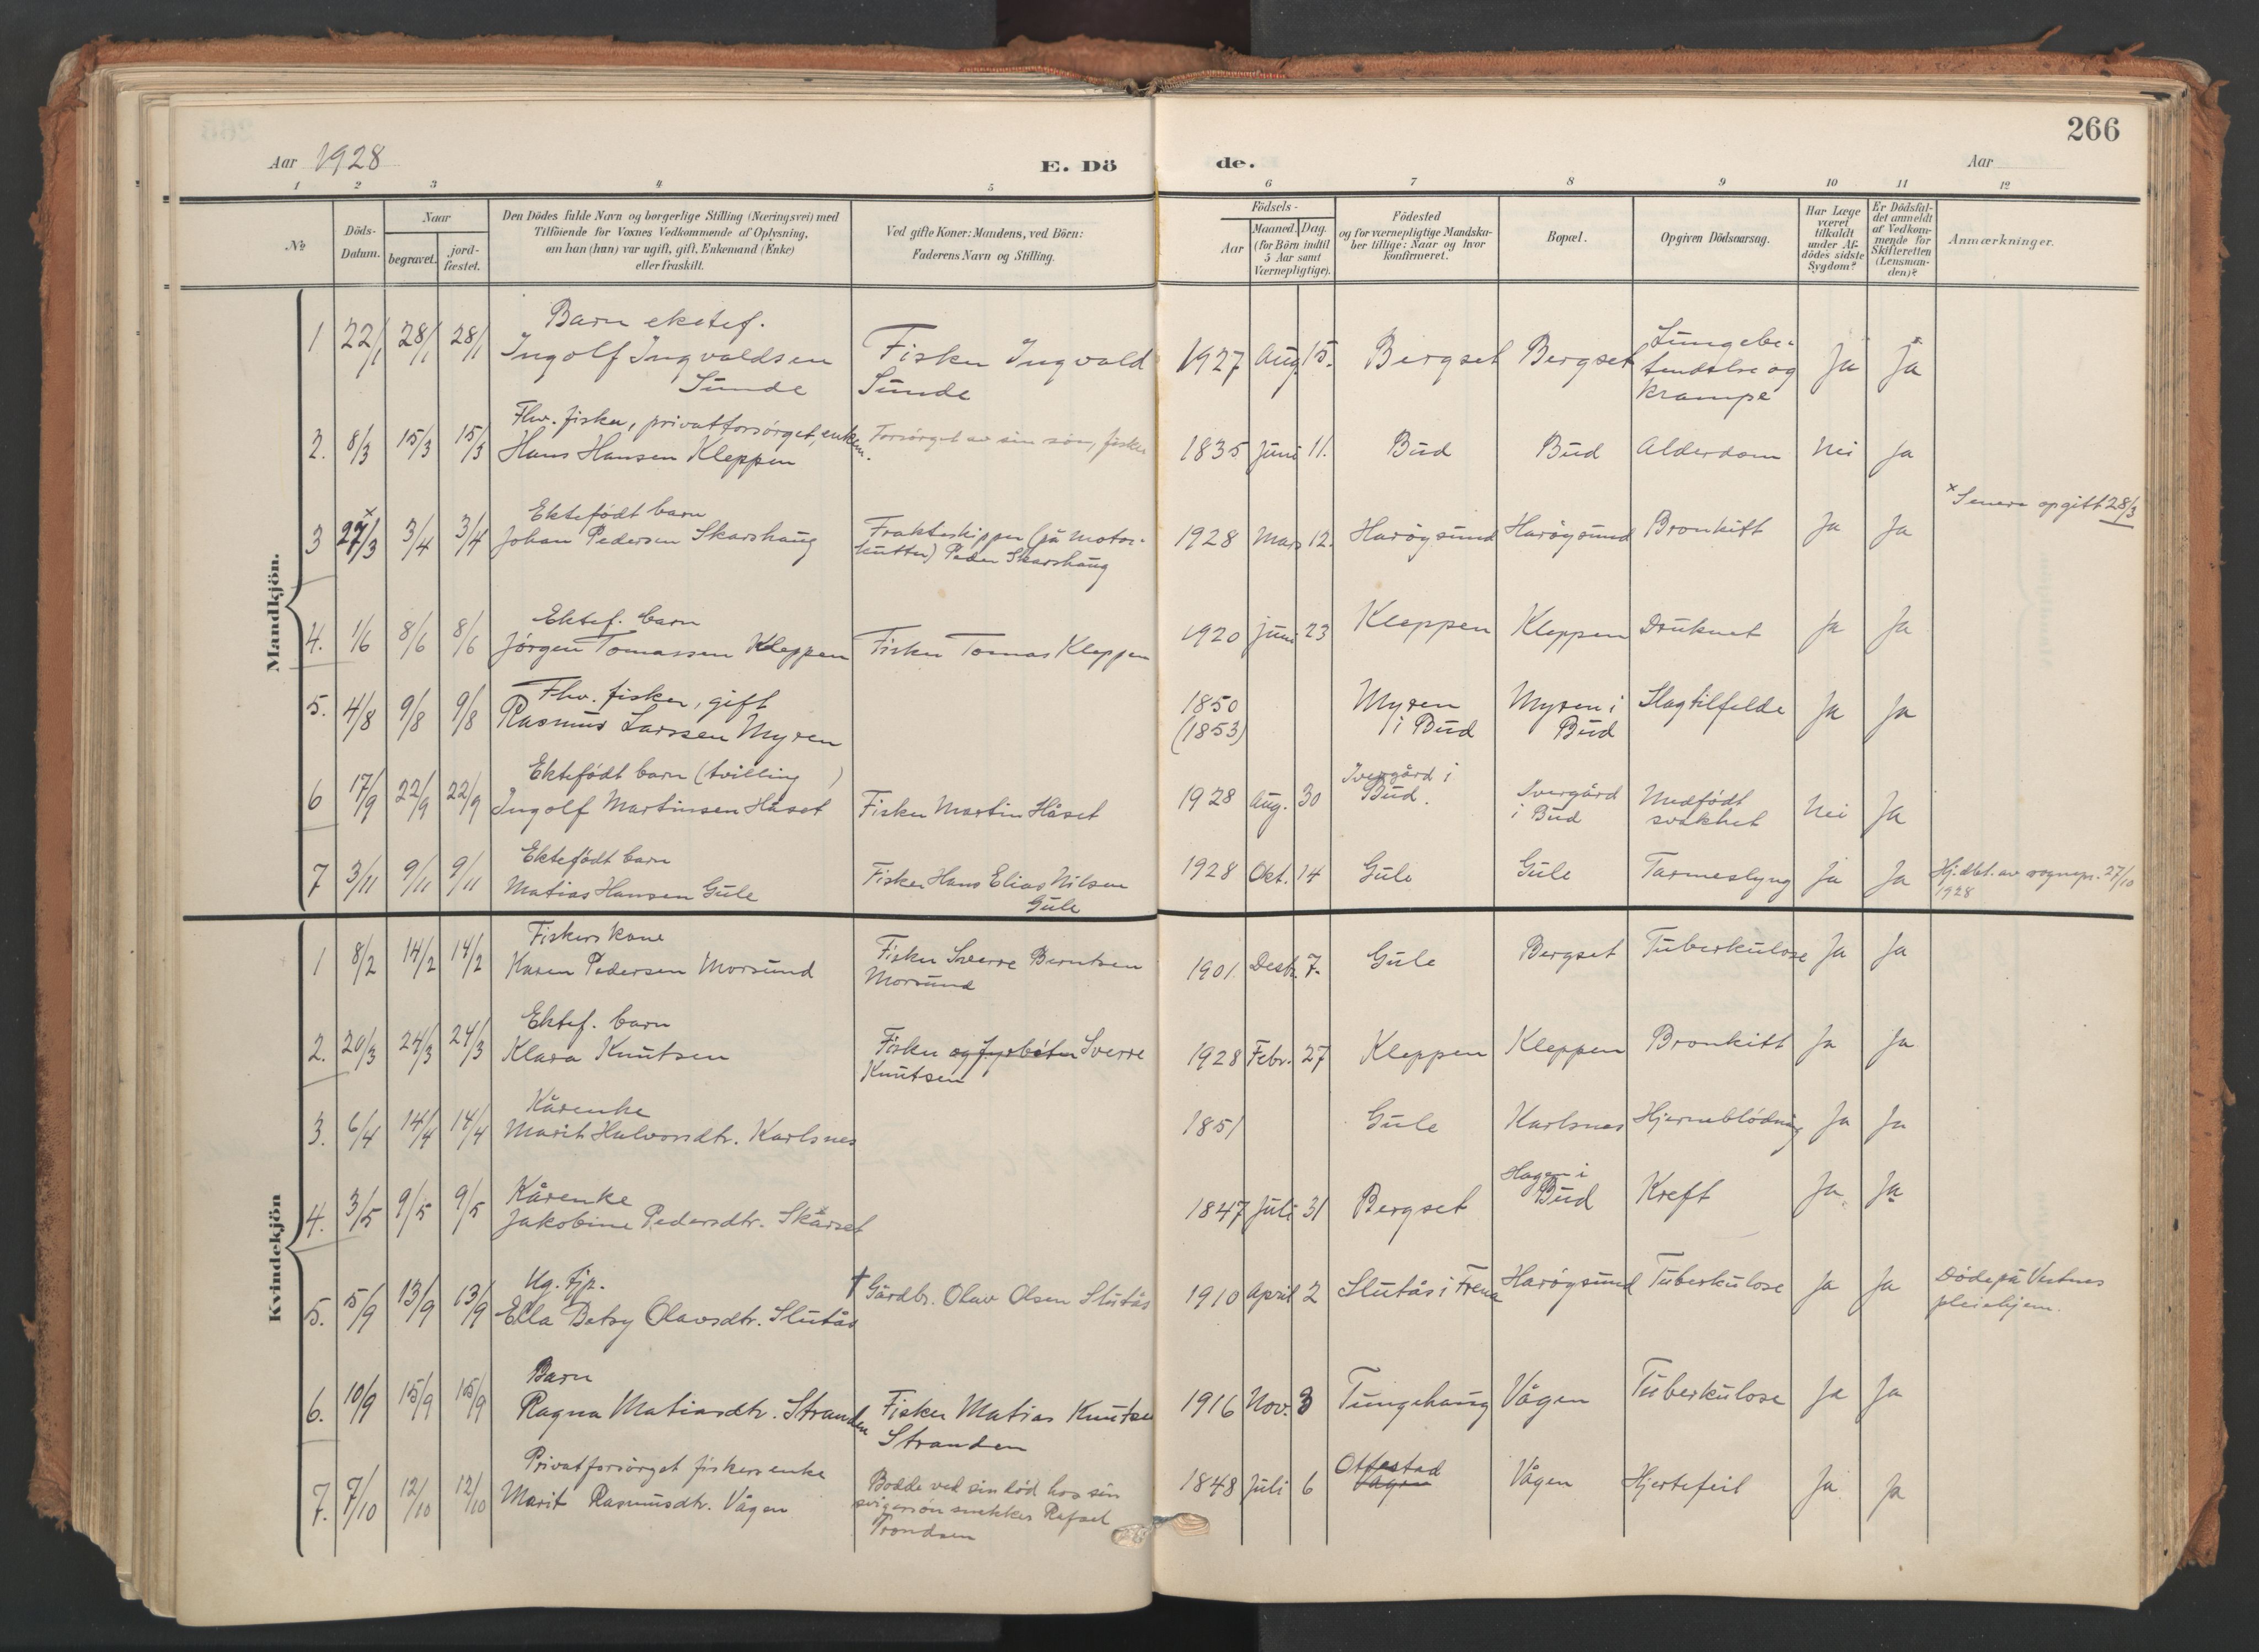 266
Aar 1928 E. Dö de. Aar
1 2 3 4 5 6 7 8 9 10 11 12
№
Döds-Datum.
Naar
begravet.
jord-fæstet.
Den Dödes fulde Navn og borgerlige Stilling (Næringsvei) med
Tilföiende for Voxnes Vedkommende af Oplysning,
om han (hun) var ugift, gift, Enkemand (Enke)
eller fraskilt.
Ved gifte Koner: Mandens, ved Börn:
Faderens Navn og Stilling.
Födsels-
Aar
Maaned. Dag.
(for Börn indtil
5 Aar samt
Værnepligtige).
Födested
og for værnepligtige Mandska-
ber tillige: Naar og hvor
konfirmeret.
Bopæl.
Opgiven Dödsaarsag.
Har Læge
været
tilkaldt
under Af-
dödes sidste
Sygdom?
Er Dödsfal-
det anmeldt
af Vedkom-
mende for
Skifteretten
(Lensman-
den)?
Anmærkninger.
Mandkjön.
Barn ektef.
1 22/1 28/1 28/1 Ingolf Ingvaldsen Fisker Ingvald 1927 Aug. 15. Bergset Bergset Lungebe-
Sunde Sunde tendelse og Ja Ja
krampe
Fhv. fisker, privatforsørget, enkem.
2. 8/3 15/3 15/3 Hans Hansen Kleppen Forsørget av sin søn, fisker 1835 Juni 11. Bud Bud Alderdom Nei Ja
× Senere opgitt 28/3
Ektefödt barn
3 27/3 × 3/4 3/4 Johan Pedersen Skarshaug Frakteskipper (på motor- 1928 Mars 12. Harøysund Harøysund Bronkitt Ja Ja
kutter) Peder Skarshaug
Ektef. barn
4. 1/6 8/6 8/6 Jørgen Tomassen Kleppen Fisker Tomas Kleppen 1920 juni 23 Kleppen Kleppen Druknet Ja Ja
Fhv. fisker, gift
5. 4/8 9/8 9/8 Rasmus Larssen Myren 1850 Myren Myren i Slagtilfelde Ja Ja
(1853) i Bud Bud
Ektefödt barn (tvilling )
6 17/9 22/9 22/9 Ingolf Martinsen Håset Fisker Martin Håset 1928 Aug. 30 Ivergård i Ivergård Medfödt Nei Ja
Bud. i Bud svakhet
Ektefödt barn
7 3/11 9/11 9/11 Matias Hansen Gule Fisker Hans Elias Nilsen 1928 Okt. 14 Gule Gule Tarmeslyng Ja Ja Hj.dbt. av sognepr. 27/10
Gule 1928
Kvindekjön
Fiskers kone
1 8/2 14/2 14/2 Karen Pedersen Morsund Fisker Sverre Berntsen 1901. Desbr. 7. Gule Bergset Tuberkulose Ja Ja
Morsund
Ektef. barn
2. 20/3 24/3 24/3 Klara Knutsen Fisker og fyrböter Sverre 1928 Febr. 27 Kleppen Kleppen Bronkitt Ja Ja
Knutsen
Kårenke
3. 6/4 14/4 14/4 Marit Halvorsdtr. Karlsnes 1851 Gule Karlsnes Hjerneblödning Ja Ja
Kårenke
4. 3/5 9/5 9/5 Jakobine Pedersdtr. Skårset 1847 Juli 31 Bergset Hagen i Kreft Ja Ja
Bud
Ug. tjp.
5. 5/9 13/9 13/9 Ella Betsy Olavsdtr. Slutås † Gårdbr. Olav Olsen Slutås 1910 April 2 Slutås i Frena Harøysund Tuberkulose Ja Ja Döde på Vestnes
pleiehjem.
Barn
6. 10/9 15/9 15/9 Ragna Matiasdtr. Stranden Fisker Matias Knutsen 1916 Nov. 3 Tungehaug Vågen Tuberkulose Ja Ja
Stranden
Privatforsørget fiskersenke
7. 7/10 12/10 12/10 Marit Rasmusdtr. Vågen Bodde ved sin död hos sin 1848 Juli 6 Ottestad Vågen Hjertefeil Ja Ja
svigersön snekker Rafael Vågen
Trondsen